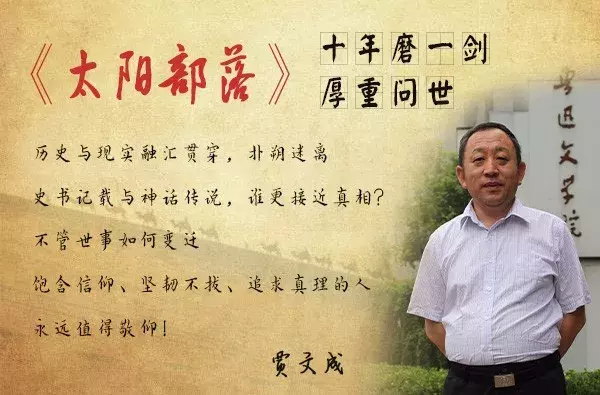 《太阳部落》
十年磨一剑
厚重问世
历史与现实融汇贯穿，扑朔迷离
史书记载与神话传说，谁更接近真相？
不管世事如何变迁
饱含信仰、坚韧不拔、追求真理的人
永远值得敬仰！
贾文成
鲁迅文学院